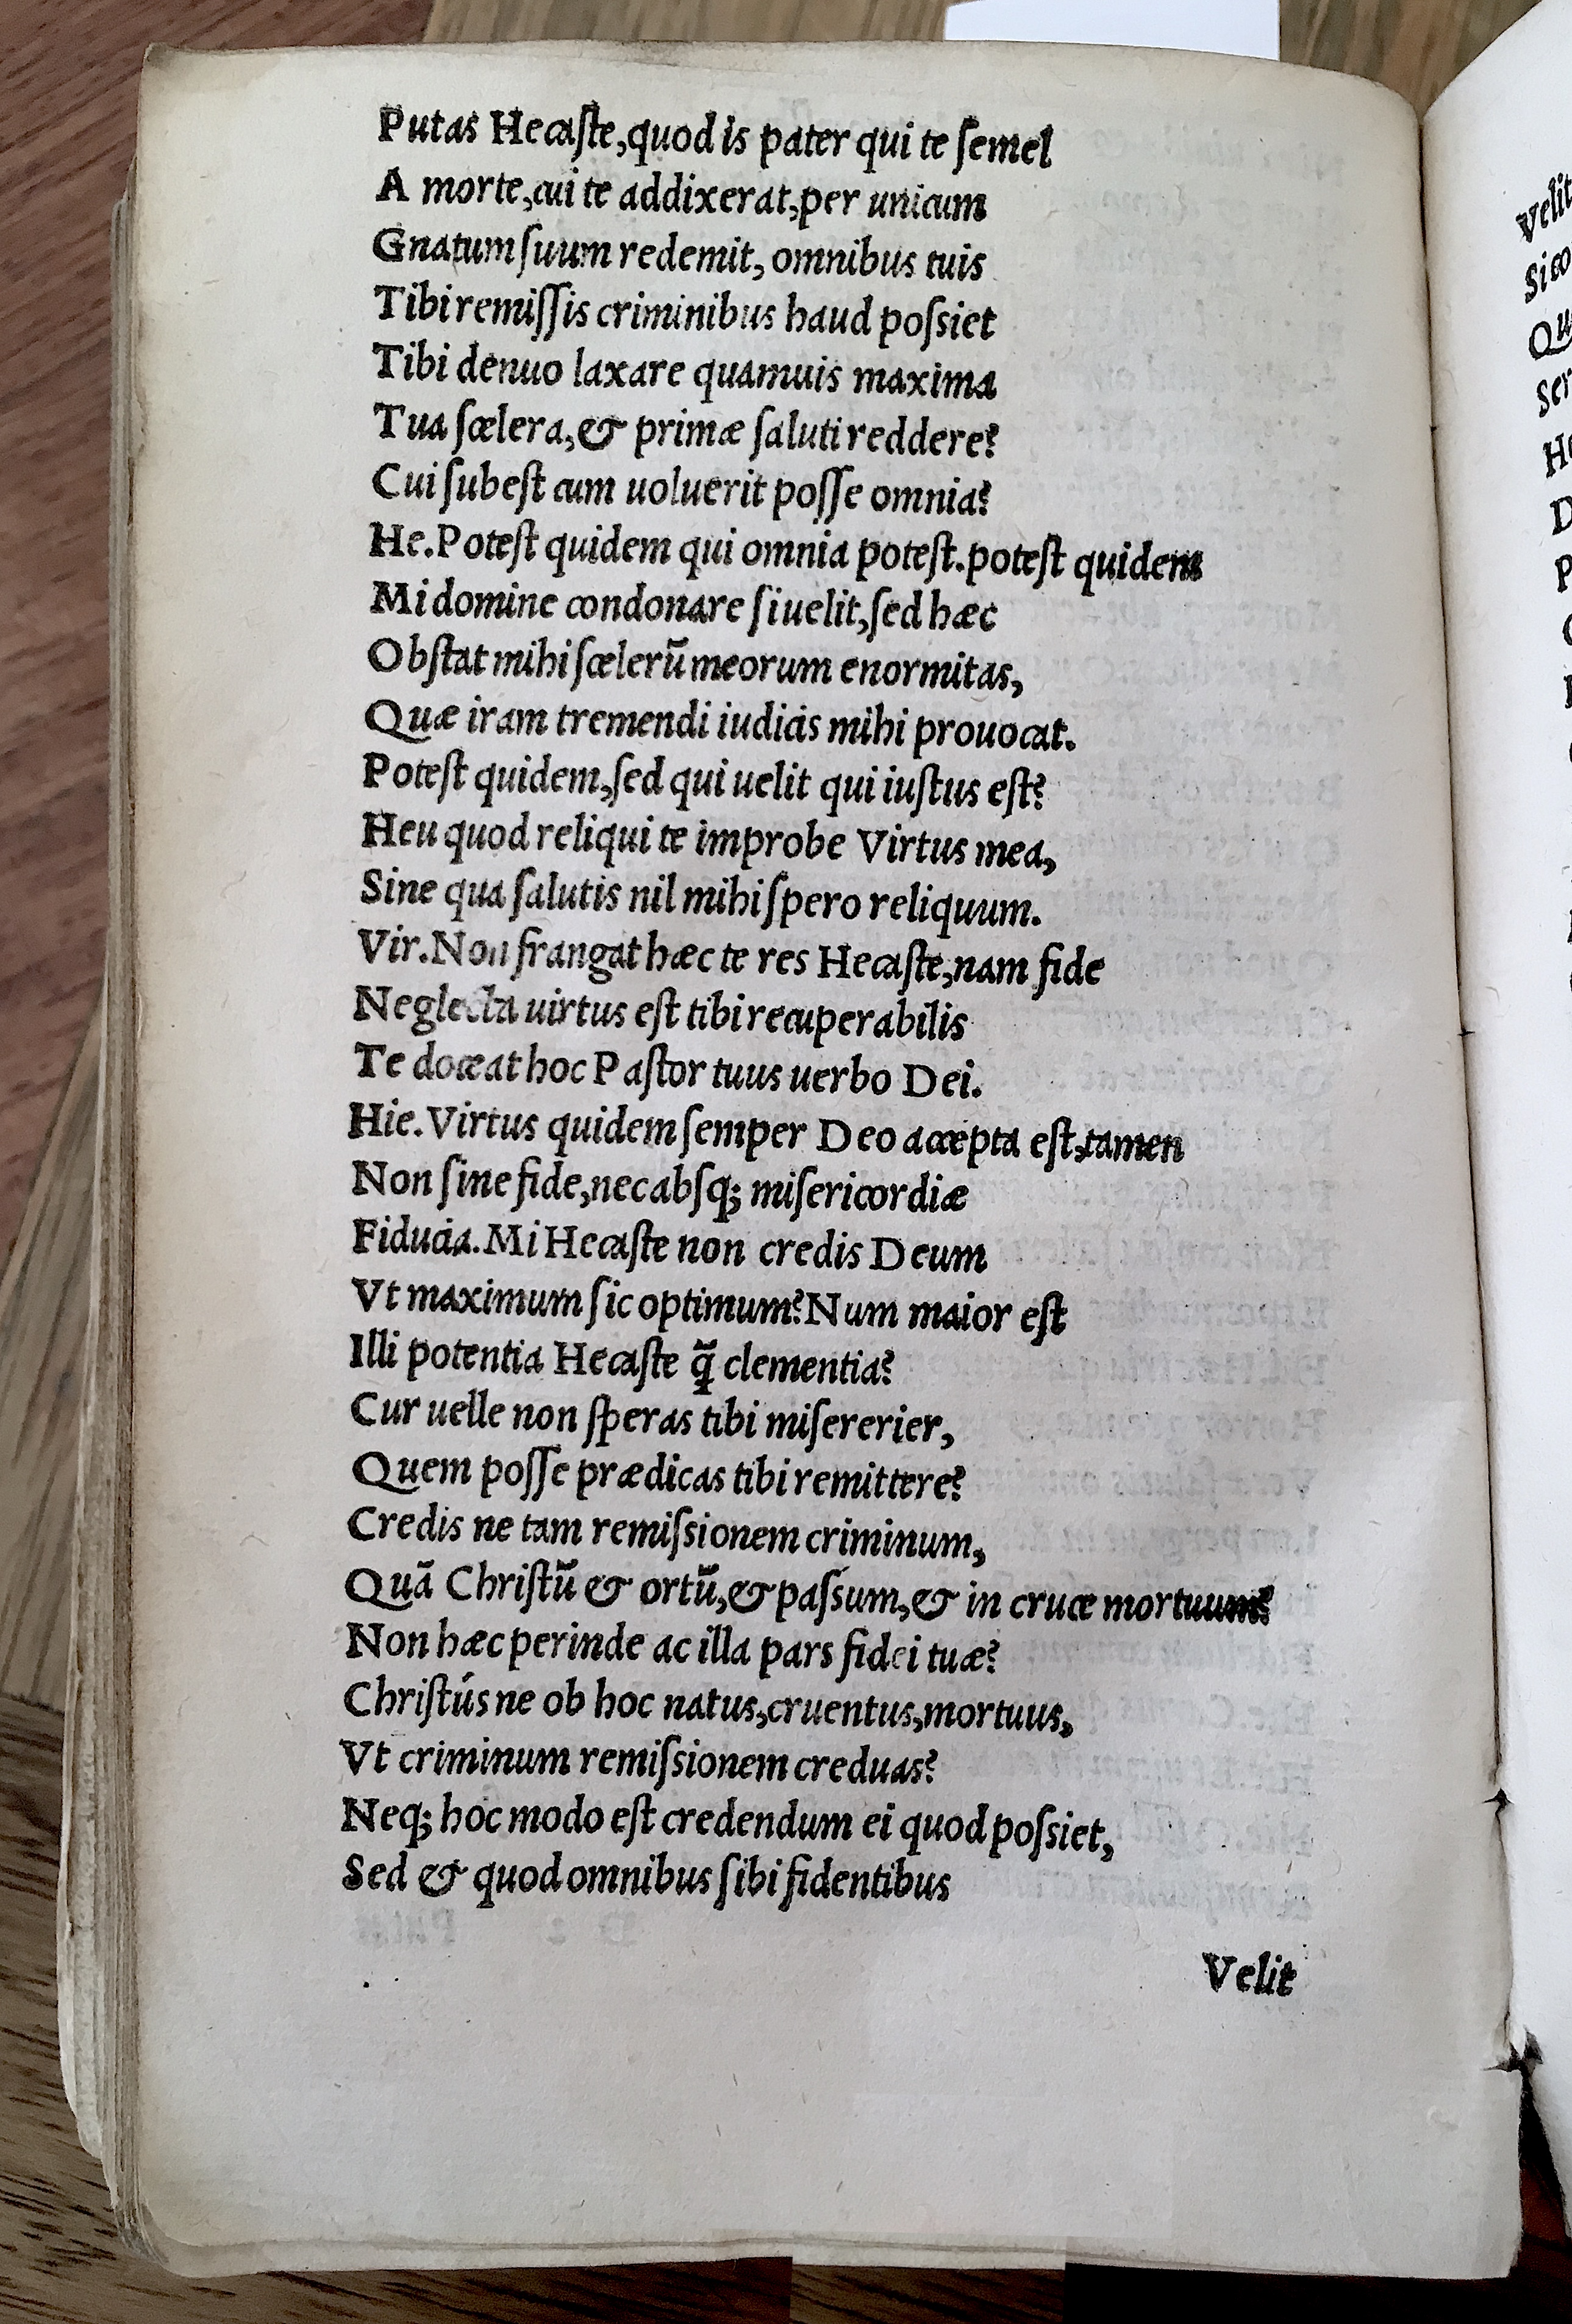 Putas Hecaſte, quod is pater qui te ſemel
A morte, cui te addixerat, per unicum
Gnatum ſuum redemit, omnibus tuis
Tibi remiſſis criminibus haud poſsiet
Tibi denuo laxare quamuis maxima
Tua ſcelera, & primæ ſaluti reddere?
Cui ſubeſt cum uoluerit poſſe omnia?
He. Poteſt quidem qui omnia poteſt. poteſt quidem
Mi domine condonare ſi uelit, ſed hæc
Obſtat mihi ſcelerū meorum enormitas,
Quæ iram tremendi iudicis mihi prouocat.
Poteſt quidem, ſed qui uelit qui iuſtus eſt?
Heu quod reliqui te improbe Virtus mea,
Sine qua ſalutis nil mihi ſpero reliquum.
Vir. Non frangat hæc te res Hecaſte, nam fide
Neglecta uirtus eſt tibi recuperabilis
Te doceat hoc Paſtor tuus uerbo Dei.
Hie. Virtus quidem ſemper Deo accepta eſt, tamen
Non ſine fide, nec abſq; miſericordiæ
Fiducia. Mi Hecaſte non credis Deum
Vt maximum ſic optimum? Num maior eſt
Illi potentia Hecaſte q̃ clementia?
Cur uelle non ſperas tibi miſererier,
Quem poſſe prædicas tibi remittere?
Credis ne tam remiſsionem criminum,
Quā Chriſtū & ortū, & paſsum, & in cruce mortuum?
Non hæc perinde ac illa pars fidei tuæ?
Chriſtús ne ob hoc natus, cruentus, mortuus,
Vt criminum remiſsionem creduas?
Neq; hoc modo eſt credendum ei quod poſsiet,
Sed & quod omnibus ſibi fidentibus
Velit
velit